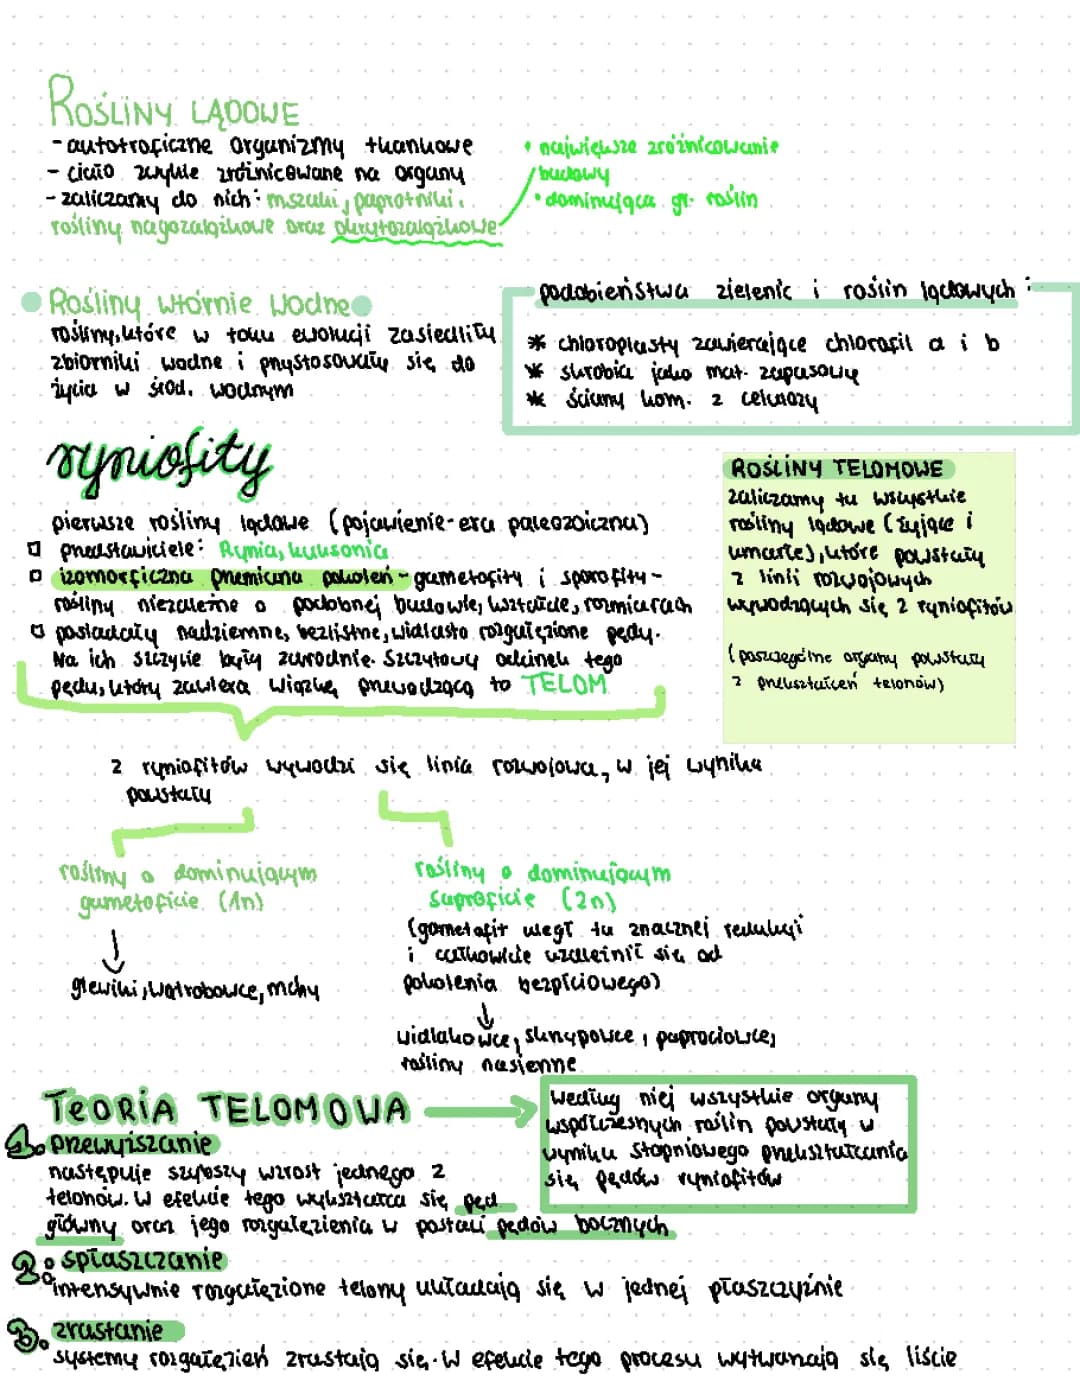 ROŚLINY LĄDOWE
- autotroficzne organizmy tkankowe
- ciało zwykle zróżnicowane na organy
- zaliczamy do nich: mszaki, paprotniki,
rośliny nagozalążkowe oraz okrytozalążkowe
• największe zróżnicowanie
budowy
• dominująca gr. roślin
Rośliny wtórnie wodne
rośliny, które w toku ewolucji zasiedliły
zbiorniki wodne i przystosowały się do
życia w środ. wodnym
podobieństwa zielenic i roślin lądowych:
* chloroplasty zawierające chlorofil a i b
* skrobia jako mat. zapasowy
* ściany kom. z celulozy
ryniofity
pierwsze rośliny lądowe (pojawienie-era paleozoiczna)
przedstawiciele: Rynia, kuksonia
izomorficzna przemiana pokoleń - gametofity i sporofity -
rośliny niezależne o podobnej budowie, kształcie, rozmiarach
posiadały nadziemne, bezlistne, widlasto rozgałęzione pędy.
Na ich szczycie były zarodnie. Szczytowy odcinek tego
pędu, który zawiera wiązkę przewodzącą to TELOM
ROŚLINY TELOMOWE
zaliczamy tu wszystkie
rośliny lądowe (żyjące i
umarłe), które powstały
z linii rozwojowych
wywodzących się z ryniofitów
(poszczególne organy powstały
z przekształceń telonów)
z ryniofitów wywodzi się linia rozwojowa, w jej wyniku
powstały
rośliny o dominującym
gametoficie (1n)
glewiki, wątrobowce, mchy
rośliny o dominującym
suproficie (2n)
(gametofit uległ tu znacznej redukcji
i całkowicie uzależnił się od
pokolenia bezpłciowego)
widłakowce, skrzypowce, paprociowce,
rośliny nasienne
TEORIA TELOMOWA
według niej wszystkie organy
współczesnych roślin powstały w
wyniku stopniowego przekształcania
się pędów ryniofitów
1. przewyższanie
następuje szybszy wzrost jednego z
telonów. W efekcie tego wykształca się pęd
główny oraz jego rozgałęzienia w postaci pędów bocznych
2. spłaszczanie
intensywnie rozgałęzione telony układają się w jednej płaszczyźnie
3. zrastanie
systemy rozgałęzień zrastają się. W efekcie tego procesu wytwarzają się liście